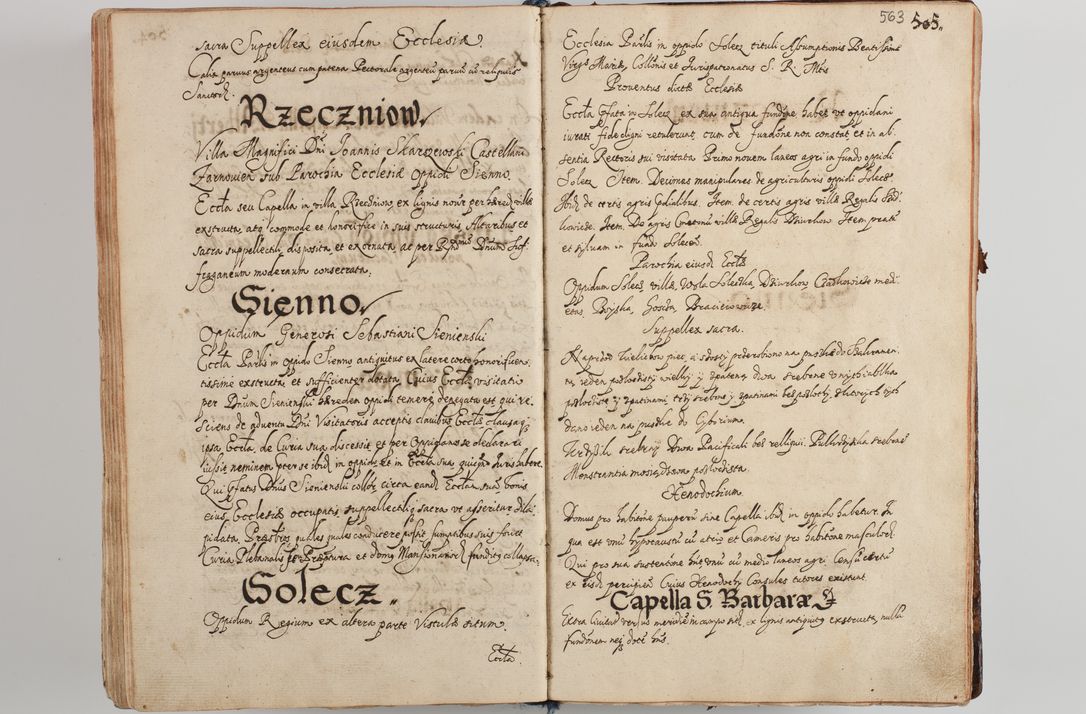 sacra Suppellex eiusdem Ecclesiæ.
Calix parvus argenteus cum patena Pectorale argenteũ parvũ cũ reliquiis
Sanctorũ.
Rzeczniow
Villa Magnifici Dni Joannis Skarszewski Castellani
Zarnovien sub Parochia Ecclesiæ Oppidi Sienno.
Eccła seu Capella in villa Rzeczniow, ex lignis noviter per hæred: villæ
exstructa, atq commode et honorifice in suis structuris, Altaribus et
sacra suppellectili disposita, et exornata, ac per Rndum Dnum Suf-
fraganeum modernum consecrata.
Sienno
Oppidum Generosi Sebastiani Sienienski
Eccła Parlis in oppido Sienno antiquitus ex latere cocto honorificen-
tissime exstructa, et sufficienter dotata, Cuius Eccłæ visitatio
per Dnum Sienienski hæredem oppidi temere denegata est qui re-
sciens de adventu Dni Visitatoris acceptis clavibus Eccłæ clausaq
ipsa Eccła, de Curia sua discessit, et per Oppidanos declarari
iussit neminem præter se ibid, in oppido et in Eccła sua quicqm Juris habere.
Qui Præfatus Dnus Sienienski circa eand Eccłam suã, bonis
eius Ecclesiæ occupatis suppellectiliq sacra ut asseritur dila-
pidata, Præsbros quales quales conducere possit sumptibus suis fovet
Curia Plebanalis Præptura et domq Mansionariorũ funditq collapsa.
Solecz
Oppidum Regium ex altera parte Vistulæ situm.
Eccła.
563 505
Ecclesia Parlis in oppido Solecz tituli Assumptionis Beatissimæ
Virgis Mariæ, Collonis et Jurispatronatus S. R. Mtis
Proventus dictæ Ecclesiæ
Eccła Præfata in Solecz ex sua antiqua fundõne habet ut oppidani
iurati fide digni retulerunt, cum de fundõne non constat, et in ab-
sentia Rectoris sui visitata Primo novem laneos agri in fundo oppidi
Solecz Item. Decimas manipulares de agriculturis oppidi Solecz
Ibid, de certis agris Item de certis agris villæ Regalis
Item. De agris Cmetonũ villæ Regalis Dziurkow Item prata
et sylvam in fundo Solecz.
Parochia eiusd Eccłæ
Oppidum Solecz villæ, Wola Solecka, Dziurkow, med-
etas,
Suppellex sacra.
Naprzod kielichow piec, a szosty przerobiono na puszke do Sakramen-
tu, ieden pozłocisty wielky y z patena, dwa srebrne
pozłociste z patinami, trzy srebrne z patinami bes pozłoty, z ktorych tych
dano ieden na puszke do Cyborium.
srebrny Dwa Pacificali bes relliquii, srebrna
Monstrantia mosiądzowa pozłocista.
Xenodochium
Domus pro habitõne pauperũ sine Capella Ibid, in oppido habetur. In
qua est unũ hypocaustũ cũ atrio et Cameris pro habitõne masculorũ.
Qui pro sua sustentõne hñt unũ cũ medio laneos agri Censũ certũ
ex eisd percipien Cuius Xenodochÿ Consules tutores existunt
Capella S. Barbaræ
Extra Civitatem versus meridiẽ in campo sita, ex lignis antiquitq exstructa, nulla
fundõnem neq dotẽ hñs.